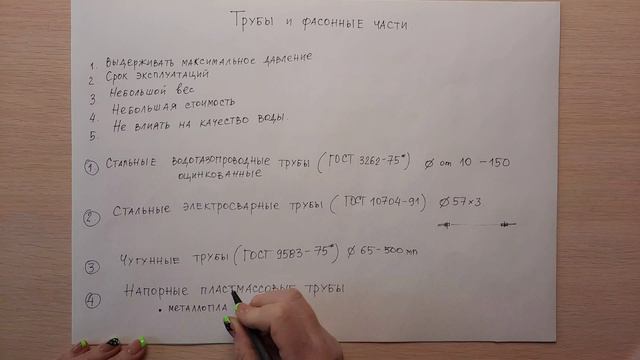 Трубы и фасонные части
1. Выдерживать максимальное давление
2 Срок эксплуатаций
3. Небольшой вес
4. Небольшая стоимость
5. Не влиять на качество воды.
1 Стальные водогазопроводные трубы (ГОСТ 3262-75*) ⌀ от 10 – 150
оцинкованные
2. Стальные электросварные трубы (ГОСТ 10704-91) ⌀ 57×3
3 Чугунные трубы (ГОСТ 9583-75*) ⌀ 65-500 мм
4 Напорные пластмассовые трубы
• металлопла